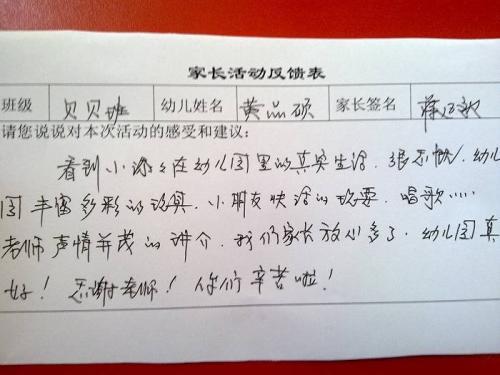 家长活动反馈表
班级 贝贝班 幼儿姓名 黄品硕 家长签名
请您说说对本次活动的感受和建议:
看到小孩在幼儿园里的真实生活,很不错!幼儿
园丰富多彩的玩具,小朋友快活的玩耍,唱歌……
老师声情并茂的讲介,我们家长放心多了,幼儿园真
好!感谢老师!你们辛苦啦!